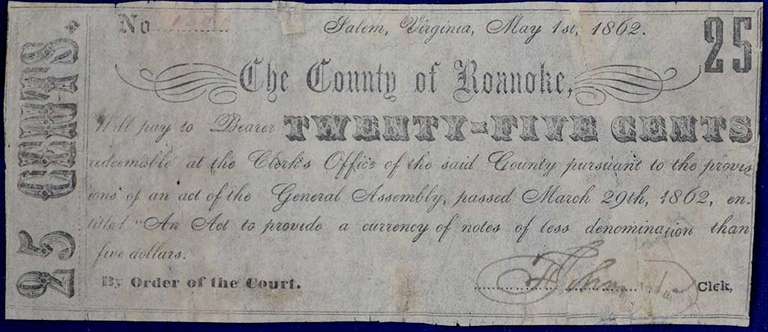 No
Salem, Virginia, May 1st, 1862.
25
25 CENTS.
The County of Roanoke,
Will pay to Bearer TWENTY-FIVE CENTS
redeemable at the Clerk's Office of the said County pursuant to the provis
ions of an act of the General Assembly, passed March 29th, 1862, en-
titled "An Act to provide a currency of notes of less denomination than
five dollars.
By Order of the Court.
Clck,